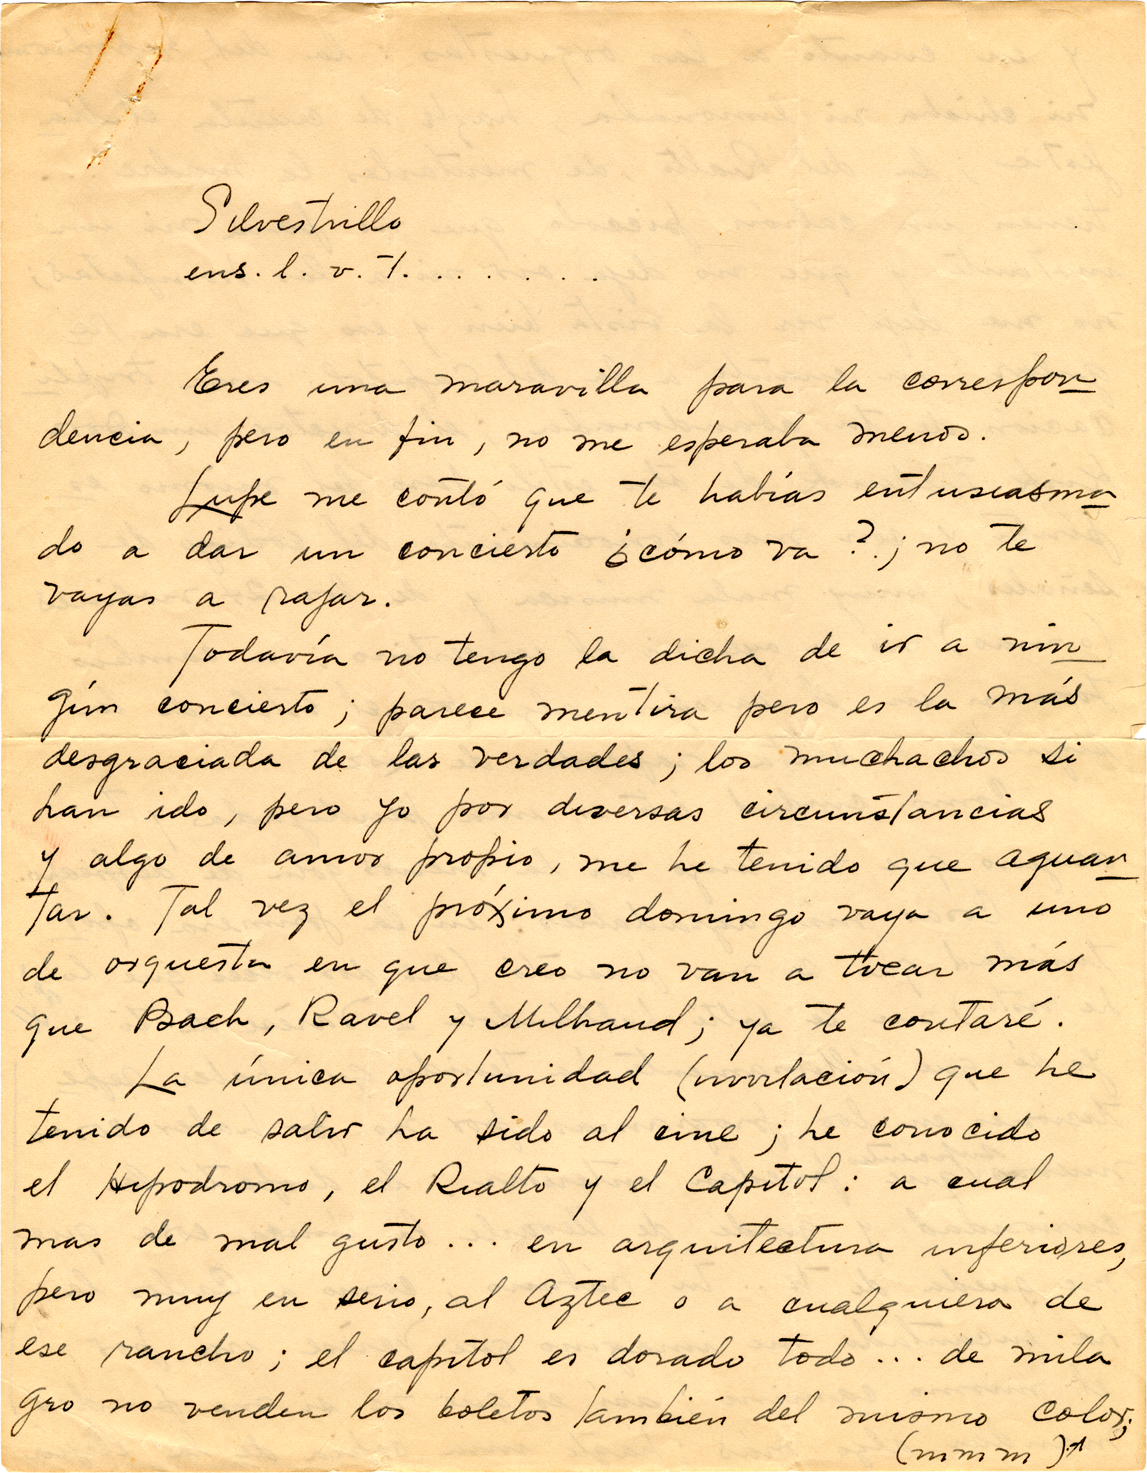 Silvestrillo
ens. l. v. t. . . . . . .
Eres una maravilla para la correspon
dencia, pero en fin, no me esperaba menos.
Lupe me contó que te habías entusiasma
do a dar un concierto ¿cómo va?; no te
vayas a rajar.
Todavía no tengo la dicha de ir a nin
gún concierto; parece mentira pero es la más
desgraciada de las verdades; los muchachos si
han ido, pero yo por diversas circunstancias
y algo de amor propio, me he tenido que aguan
tar. Tal vez el próximo domingo vaya a uno
de orquesta en que creo no van a tocar más
que Bach, Ravel y Milhaud; ya te contaré.
La única oportunidad (invitación) que he
tenido de salir ha sido al cine; he conocido
el Hipodromo, el Rialto y el Capitol: a cual
mas de mal gusto... en arquitectura inferiores,
pero muy en serio, al Aztec o a cualquiera de
ese rancho; el capitol es dorado todo... de mila
gro no venden los boletos también del mismo color;
(mmm)